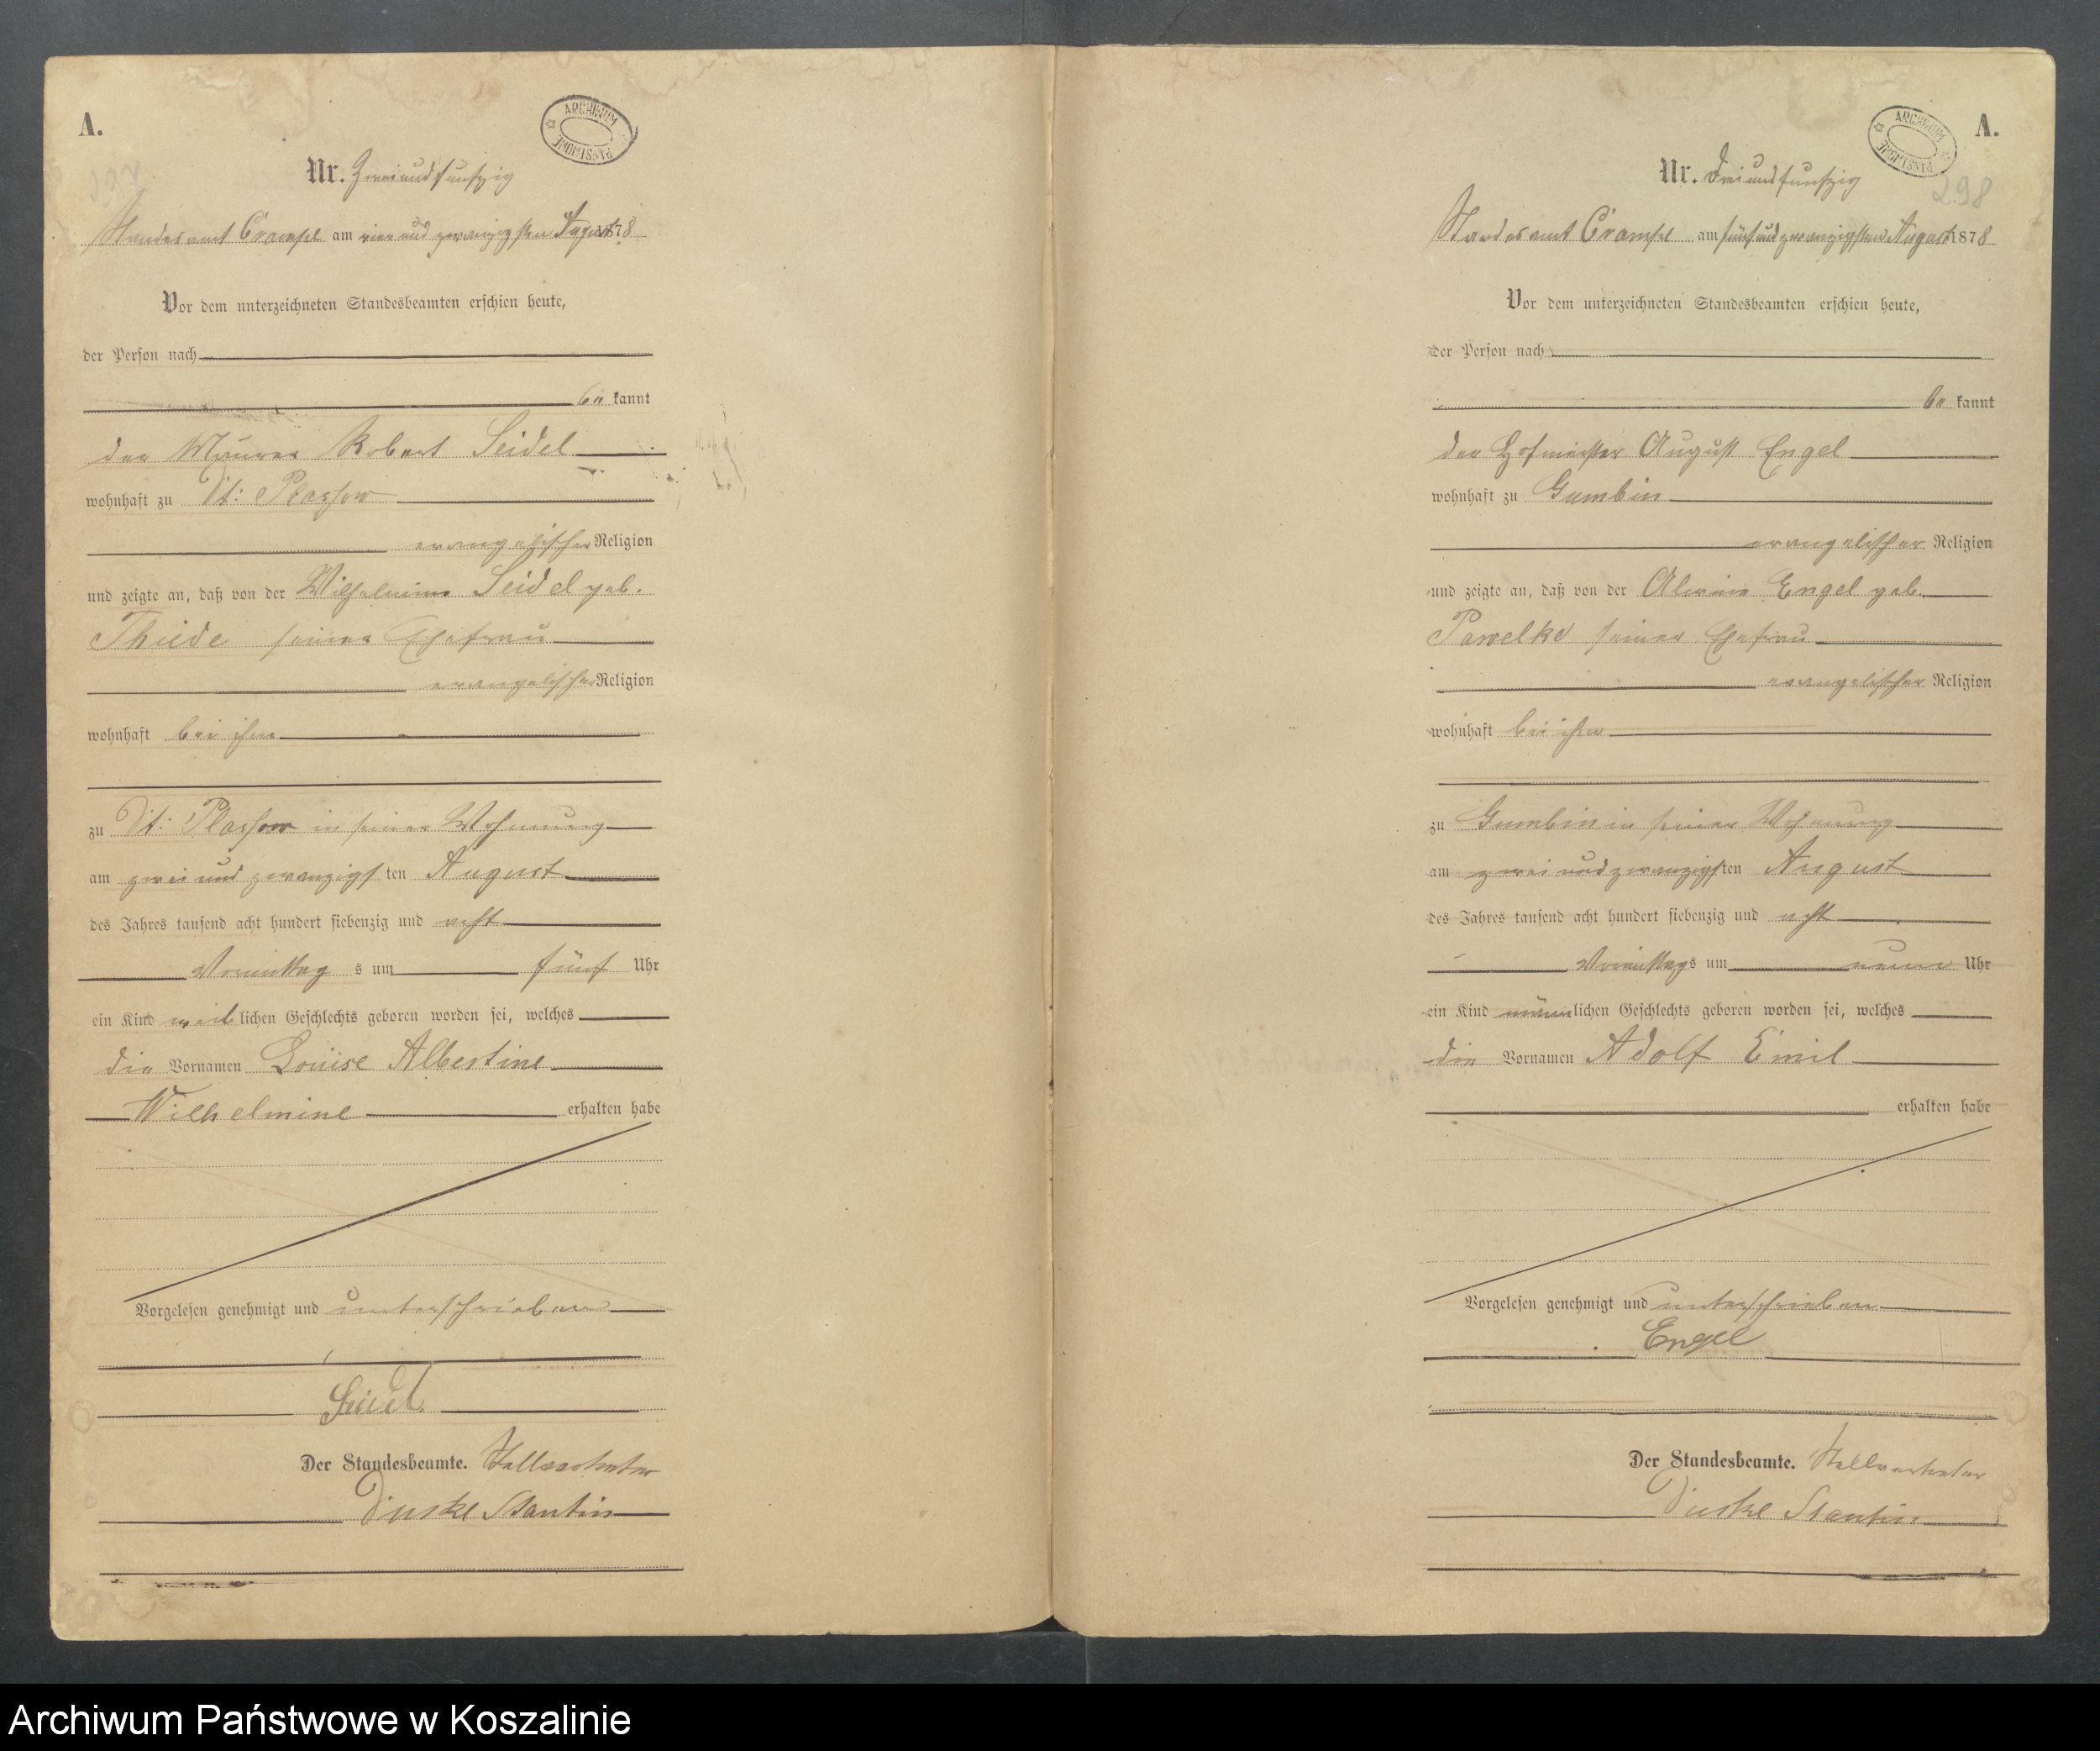 A.
ARCHIWUM PAŃSTWOWE
Nr. Zweiundfunfzig
Standesamt Crampe am vier und zwanzigsten August 1878
Vor dem unterzeichneten Standesbeamten erschien heute,
der Person nach
be kannt
der Maurer Robert Seidel
wohnhaft zu Dt: Plassow
evangelischer Religion
und zeigte an, daß von der Wilhelmine Seidel geb.
Thiede seiner Ehefrau
evangelischer Religion
wohnhaft bei ihm
zu Dt: Plassow in seiner Wohnung
am zwei und zwanzigsten August
des Jahres tausend acht hundert siebenzig und acht
Vormittag s um fünf Uhr
ein Kind weiblichen Geschlechts geboren worden sei, welches
die Vornamen Louise Albertine
Wilhelmine erhalten habe
Vorgelesen genehmigt und unterschrieben
Seidel
Der Standesbeamte. Stellvertreter
Stantin
A.
ARCHIWUM PAŃSTWOWE
298
Nr. Dreiundfunfzig
Standesamt Crampe am fünfundzwanzigsten August 1878
Vor dem unterzeichneten Standesbeamten erschien heute,
der Person nach
be kannt
der Hofmeister August Engel
wohnhaft zu Gumbin
evangelischer Religion
und zeigte an, daß von der Alwine Engel geb.
Pawelke seiner Ehefrau
evangelischer Religion
wohnhaft bei ihm
zu Gumbin in seiner Wohnung
am zwei und zwanzigsten August
des Jahres tausend acht hundert siebenzig und acht
Vormittags um neun Uhr
ein Kind männlichen Geschlechts geboren worden sei, welches
die Vornamen Adolf Emil
erhalten habe
Vorgelesen genehmigt und unterschrieben
Engel
Der Standesbeamte. Stellvertreter
Stantin
Archiwum Państwowe w Koszalinie